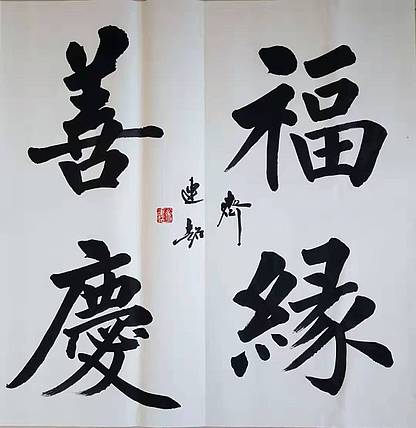 福緣
善慶